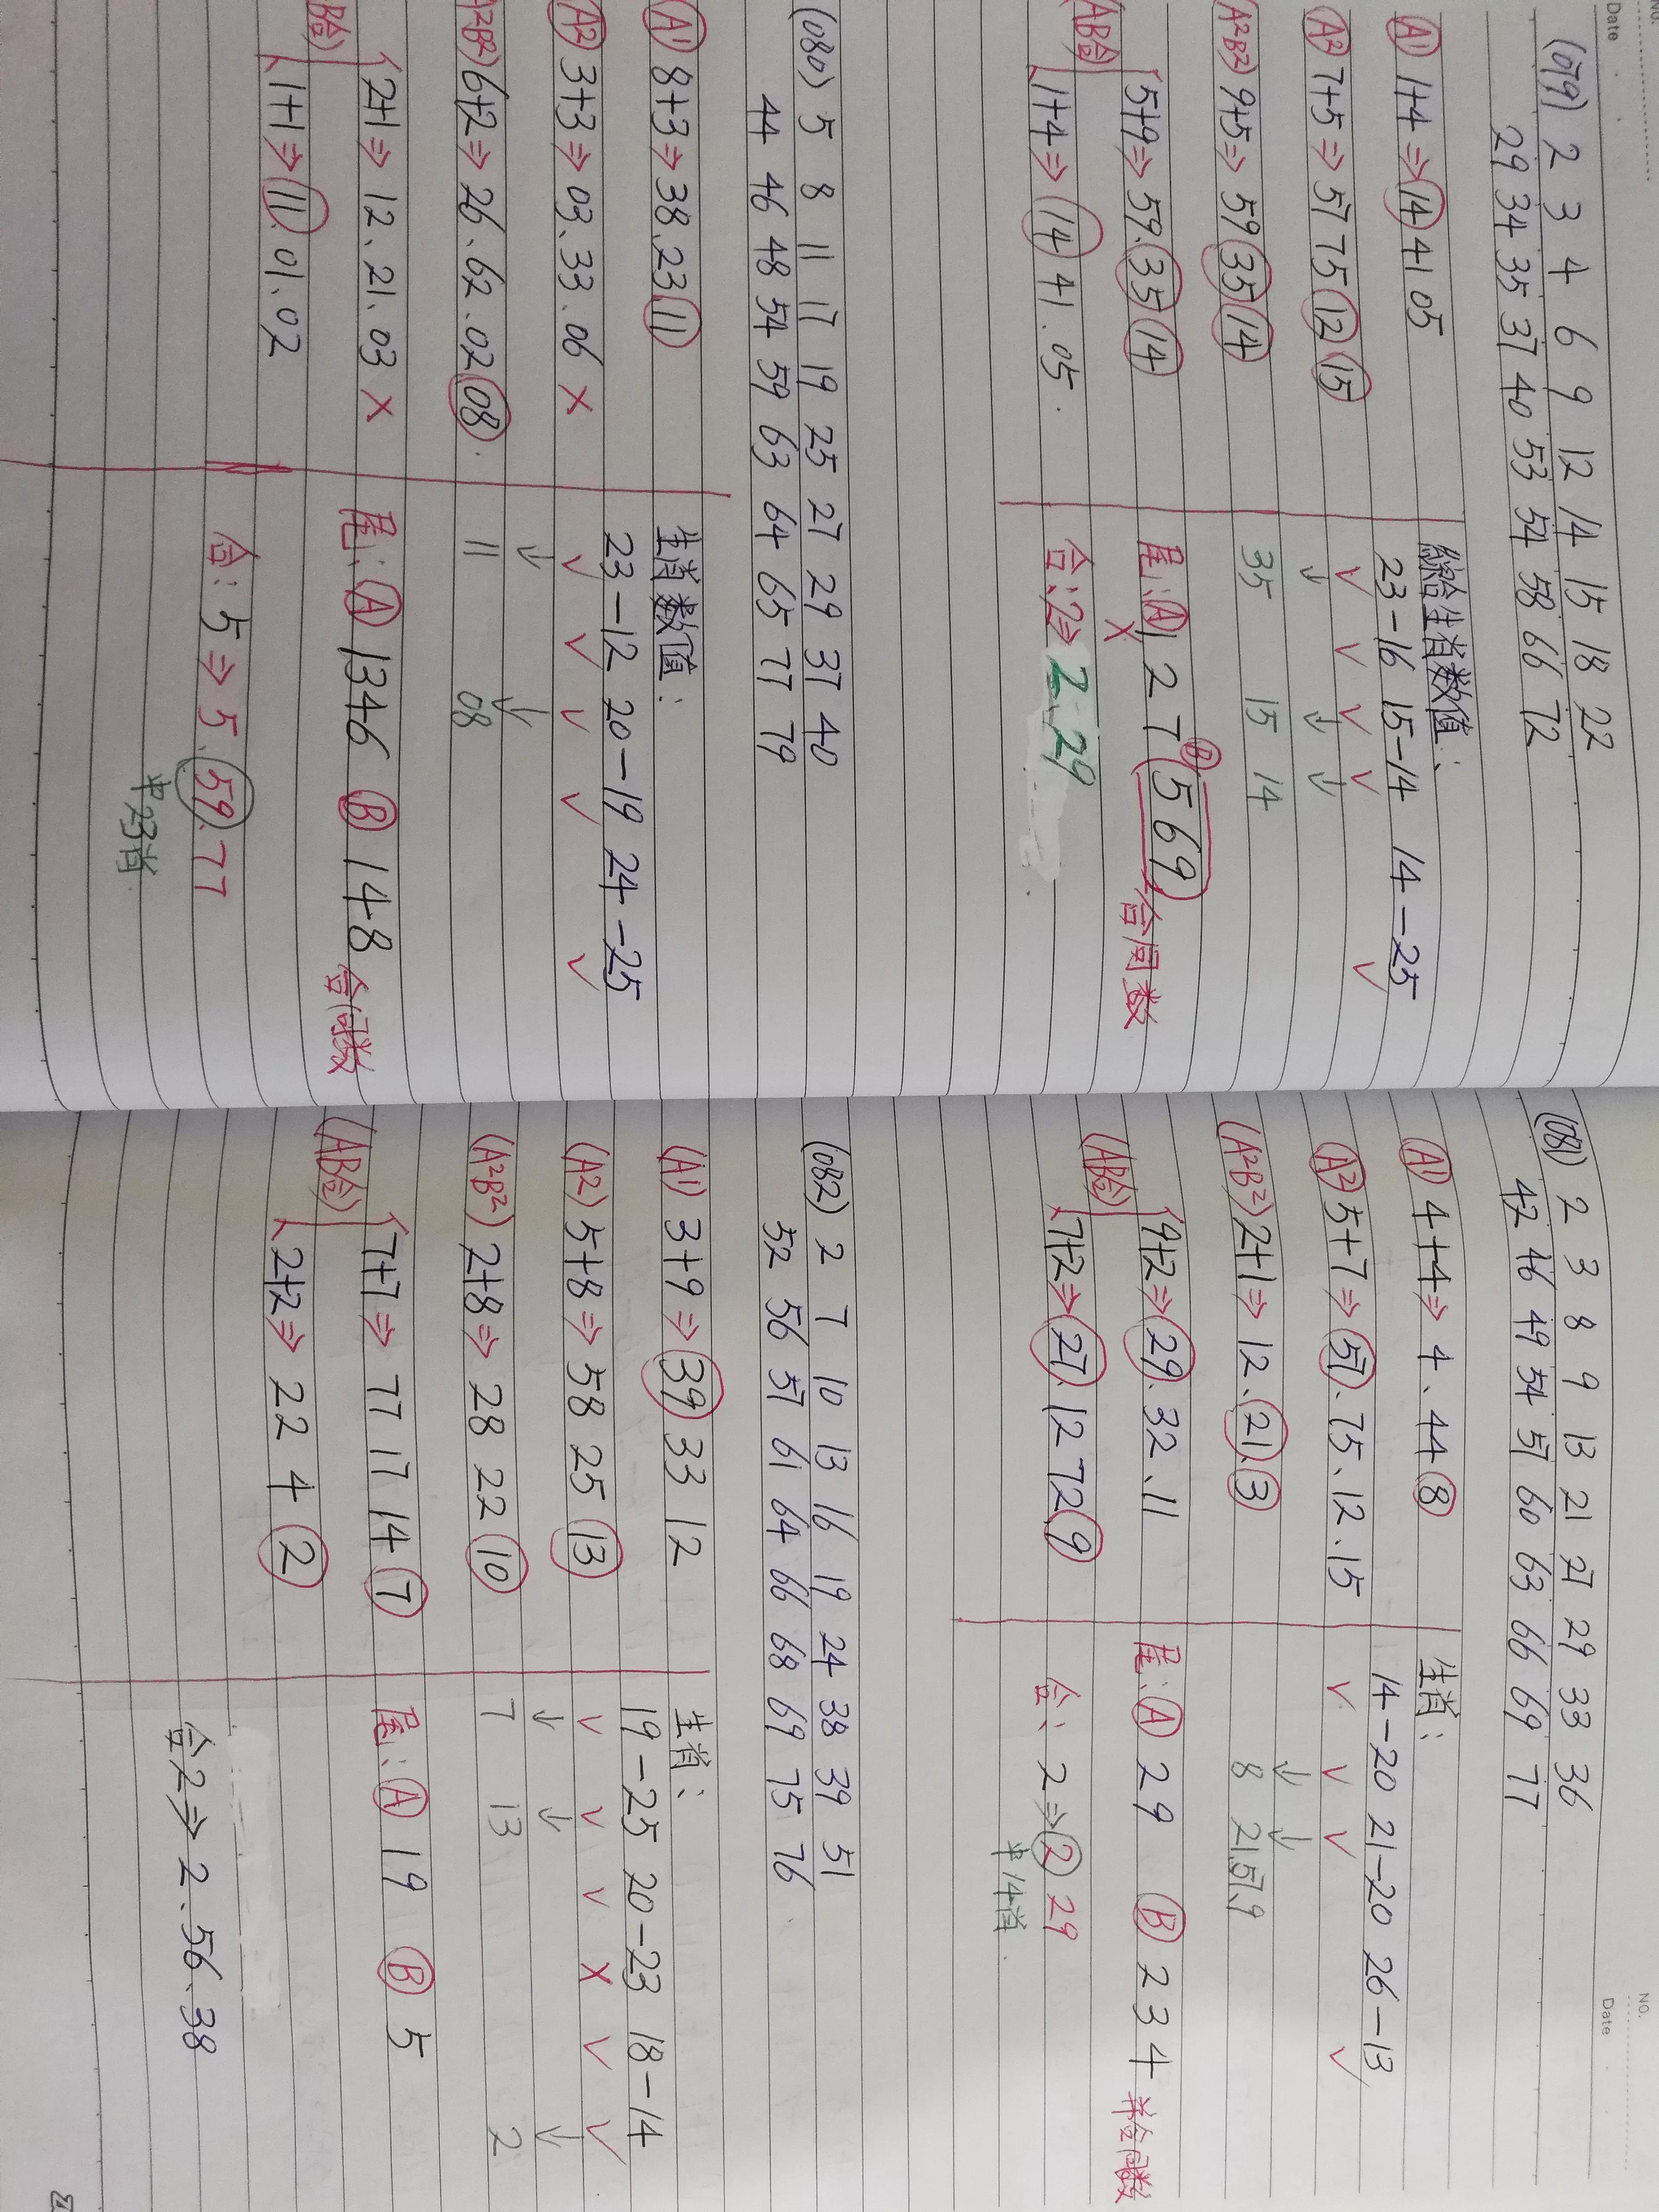 NO.
Date
(079) 2 3 4 6 9 12 14 15 18 22
29 34 35 37 40 53 54 58 66 72
(A1) 1+4 ⇒ 14 41 05
(A2) 7+5 ⇒ 57 75 12 15
(A²B²) 9+5 ⇒ 59 35 14
(AB合) 5+9 ⇒ 59.35 14
1+4 ⇒ 14 41.05.
綜合生肖数值:
23-16 15-14 14-25
✓ ✓ ✓ ✓ ✓
↓ ↓ ↓
35 15 14
尾:(A) 1 2 7 (B) 5 6 9 合同数
X
合:2⇒ 2.29
(080) 5 8 11 17 19 25 27 29 37 40
44 46 48 54 59 63 64 65 77 79
(A1) 8+3 ⇒ 38.23 11
(A2) 3+3 ⇒ 03.33.06 X
(A²B²) 6+2 ⇒ 26.62.02 08.
(AB合) 2+1 ⇒ 12.21.03 X
1+1 ⇒ 11.01.02
生肖数值:
23-12 20-19 24-25
✓ ✓ ✓ ✓ ✓
↓ ↓
11 08
尾:(A) 1346 (B) 148 合同数
合:5 ⇒ 5.59.77
中23肖
NO.
Date
(081) 2 3 8 9 13 21 27 29 33 36
42 46 49 54 57 60 63 66 69 77
(A1) 4+4 ⇒ 4.44 8
(A2) 5+7 ⇒ 57.75.12.15
(A²B²) 2+1 ⇒ 12.21.3
(AB合) 9+2 ⇒ 29.32.11
7+2 ⇒ 27.12 72 9
生肖:
14-20 21-20 26-13
✓ ✓ ✓ ✓
↓ ↓
8 21.57.9
尾:(A) 29 (B) 234 並合同数
合:2 ⇒ 2 29
中14肖.
(082) 2 7 10 13 16 19 24 38 39 51
52 56 57 61 64 66 68 69 75 76
(A1) 3+9 ⇒ 39 33 12
(A2) 5+8 ⇒ 58 25 13
(A²B²) 2+8 ⇒ 28 22 10
(AB合) 7+7 ⇒ 77 17 14 7
2+2 ⇒ 22 4 2
生肖:
19-25 20-23 18-14
✓ ✓ ✓ X ✓ ✓
↓ ↓ ↓
7 13 2
尾:(A) 19 (B) 5
合2 ⇒ 2.56.38